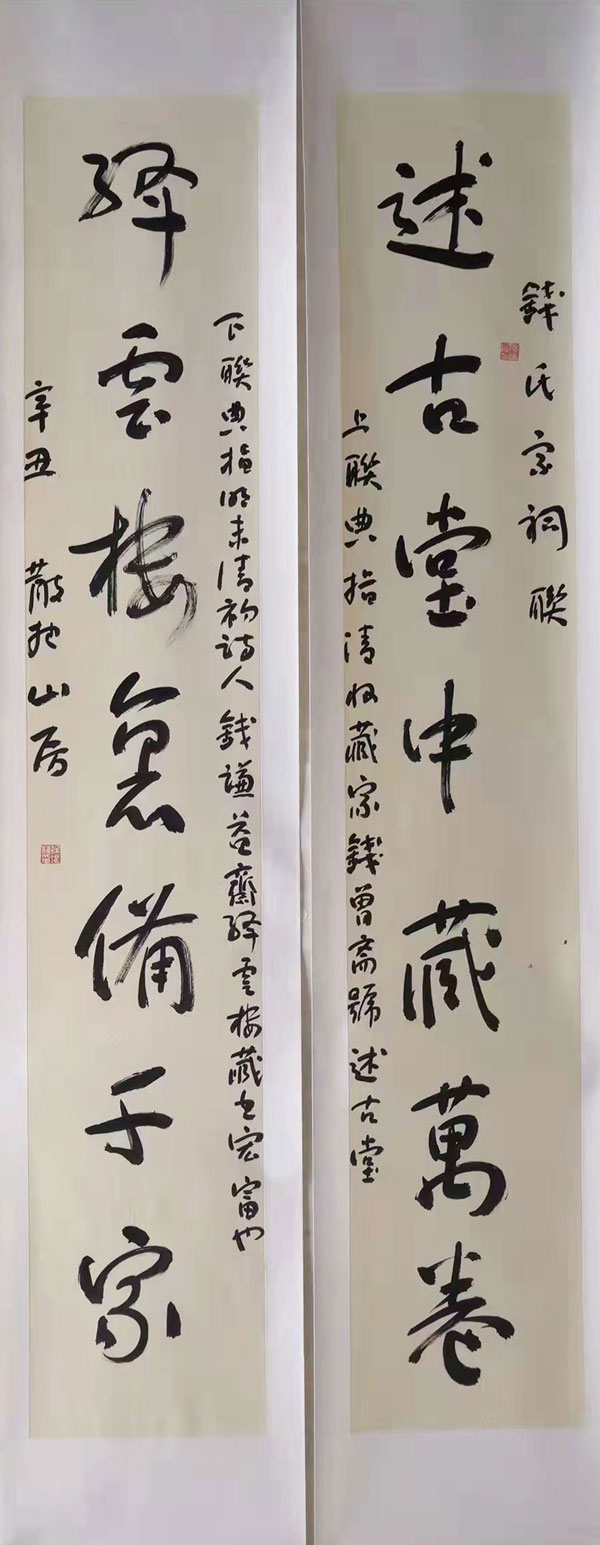 錢氏宗祠聯
述古堂中藏萬卷
上聯典指清收藏家錢曾齋號述古堂
下聯典指明末清初詩人錢謙益齋絳雲樓藏書宏富也
絳雲樓裏備千家
辛丑 散抱山房